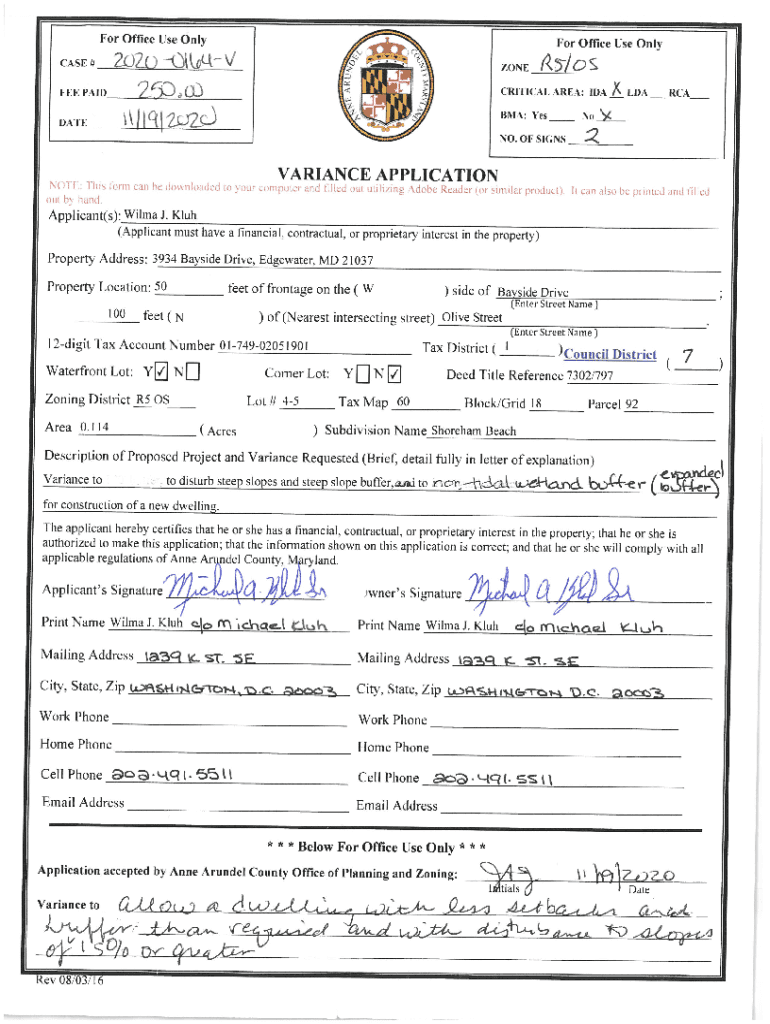 For Office Use Only
CASE # 2020-0164-V
FEE PAID 250.00
DATE 11/19/2020
ANNE ARUNDEL COUNTY, MARYLAND
For Office Use Only
ZONE R5/OS
CRITICAL AREA: IDA X LDA RCA
BMA: Yes No X
NO. OF SIGNS 2
VARIANCE APPLICATION
NOTE: This form can be downloaded to your computer and filled out utilizing Adobe Reader (or similar product). It can also be printed and filled
out by hand.
Applicant(s): Wilma J. Kluh
(Applicant must have a financial, contractual, or proprietary interest in the property)
Property Address: 3934 Bayside Drive, Edgewater, MD 21037
Property Location: 50 feet of frontage on the ( W ) side of Bayside Drive ;
(Enter Street Name )
100 feet ( N ) of (Nearest intersecting street) Olive Street .
(Enter Street Name )
12-digit Tax Account Number 01-749-02051901 Tax District ( 1 ) Council District ( 7 )
Waterfront Lot: Y ✓ N Corner Lot: Y N ✓ Deed Title Reference 7302/797
Zoning District R5 OS Lot # 4-5 Tax Map 60 Block/Grid 18 Parcel 92
Area 0.114 ( Acres ) Subdivision Name Shoreham Beach
Description of Proposed Project and Variance Requested (Brief, detail fully in letter of explanation)
Variance to to disturb steep slopes and steep slope buffer, and to non-tidal wetland buffer (expanded buffer)
for construction of a new dwelling.
The applicant hereby certifies that he or she has a financial, contractual, or proprietary interest in the property; that he or she is
authorized to make this application; that the information shown on this application is correct; and that he or she will comply with all
applicable regulations of Anne Arundel County, Maryland.
Applicant's Signature Michael A. Kluh Sr wner's Signature Michael A Kluh Sr
Print Name Wilma J. Kluh c/o michael Kluh Print Name Wilma J. Kluh c/o michael Kluh
Mailing Address 1239 K ST. SE Mailing Address 1239 K ST. SE
City, State, Zip WASHINGTON, D.C. 20003 City, State, Zip WASHINGTON D.C. 20003
Work Phone Work Phone
Home Phone Home Phone
Cell Phone 202.491.5511 Cell Phone 202.491.5511
Email Address Email Address
* * * Below For Office Use Only * * *
Application accepted by Anne Arundel County Office of Planning and Zoning: 11/19/2020
Initials Date
Variance to allow a dwelling with less setbacks and
buffer than required and with disturbance to slopes
of 15% or greater
Rev 08/03/16